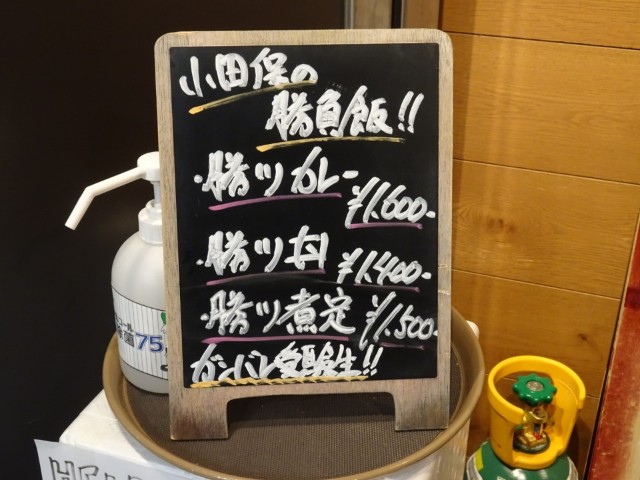 小田保の
勝負飯!!
・勝ツカレー ¥1.600-
・勝ツ丼 ¥1.400-
・勝ツ煮定 ¥1.500-
ガンバレ受験生!!
75